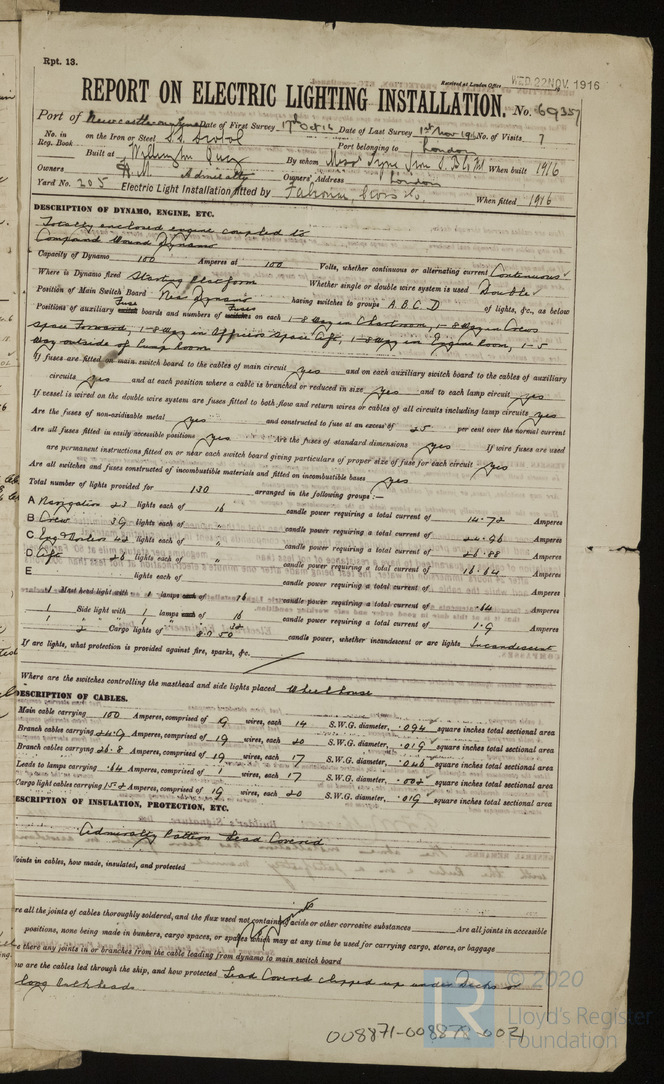 Rpt. 13.
Received at London Office WED. 22 NOV. 1916
REPORT ON ELECTRIC LIGHTING INSTALLATION. No. 69357
Port of Newcastle on Tyne Date of First Survey 17th Oct 16 Date of Last Survey 1st Nov 1916 No. of Visits 7
No. in Reg. Book on the Iron or Steel S.S. Port belonging to London
Built at Willington Quay By whom Mess When built 1916
Owners Admiralty Owners' Address London
Yard No. 205 Electric Light Installation fitted by Falconar, Cross & Co. When fitted 1916
DESCRIPTION OF DYNAMO, ENGINE, ETC.
Totally enclosed engine coupled to
Compound Wound Dynamo
Capacity of Dynamo 100 Amperes at 100 Volts, whether continuous or alternating current Continuous
Where is Dynamo fixed Starting Platform Whether single or double wire system is used Double
Position of Main Switch Board Near Dynamo having switches to groups A B C D of lights, &c., as below
Positions of auxiliary Fuse switch boards and numbers of Fuses switches on each 1-8 Way in Chartroom, 1-8 Way in Crews
Space Forward, 1-8 Way in Officers Space Aft, 1-8 Way in Engine Room, 1-5
Way outside of Lamp Room
If fuses are fitted on main switch board to the cables of main circuit yes and on each auxiliary switch board to the cables of auxiliary
circuits yes and at each position where a cable is branched or reduced in size yes and to each lamp circuit yes
If vessel is wired on the double wire system are fuses fitted to both flow and return wires or cables of all circuits including lamp circuits yes
Are the fuses of non-oxidizable metal yes and constructed to fuse at an excess of 25 per cent over the normal current
Are all fuses fitted in easily accessible positions yes Are the fuses of standard dimensions yes If wire fuses are used
are permanent instructions fitted on or near each switch board giving particulars of proper size of fuse for each circuit yes
Are all switches and fuses constructed of incombustible materials and fitted on incombustible bases yes
Total number of lights provided for 130 arranged in the following groups:—
A Navigation 23 lights each of 16 candle power requiring a total current of 14.72 Amperes
B Crew 39 lights each of " candle power requiring a total current of 24.96 Amperes
C Eng & Boilers 42 lights each of " candle power requiring a total current of 26.88 Amperes
D Aft 26 lights each of " candle power requiring a total current of 16.64 Amperes
E lights each of candle power requiring a total current of Amperes
1 Mast head light with 1 lamps each of 16 candle power requiring a total current of .64 Amperes
1 Side light with 1 lamps each of 16 candle power requiring a total current of Amperes
2 Cargo lights of candle power, whether incandescent or arc lights Incandescent
If arc lights, what protection is provided against fire, sparks, &c.
Where are the switches controlling the masthead and side lights placed Wheelhouse
DESCRIPTION OF CABLES.
Main cable carrying 100 Amperes, comprised of 19 wires, each 14 S.W.G. diameter, .094 square inches total sectional area
Branch cables carrying 24.9 Amperes, comprised of 19 wires, each 20 S.W.G. diameter, .019 square inches total sectional area
Branch cables carrying 26.8 Amperes, comprised of 19 wires, each 17 S.W.G. diameter, .046 square inches total sectional area
Leads to lamps carrying .64 Amperes, comprised of 1 wires, each 17 S.W.G. diameter, .002 square inches total sectional area
Cargo light cables carrying Amperes, comprised of 19 wires, each 20 S.W.G. diameter, .019 square inches total sectional area
DESCRIPTION OF INSULATION, PROTECTION, ETC.
Admiralty Pattern Lead Covered
Joints in cables, how made, insulated, and protected
No Joints
re all the joints of cables thoroughly soldered, and the flux used not containing acids or other corrosive substances Are all joints in accessible
positions, none being made in bunkers, cargo spaces, or spaces which may at any time be used for carrying cargo, stores, or baggage
e there any joints in or branches from the cable leading from dynamo to main switch board
ow are the cables led through the ship, and how protected Lead Covered clipped up under Decks or
long bulkheads
© 2020
LR Lloyd's Register Foundation
008871-008878-0021